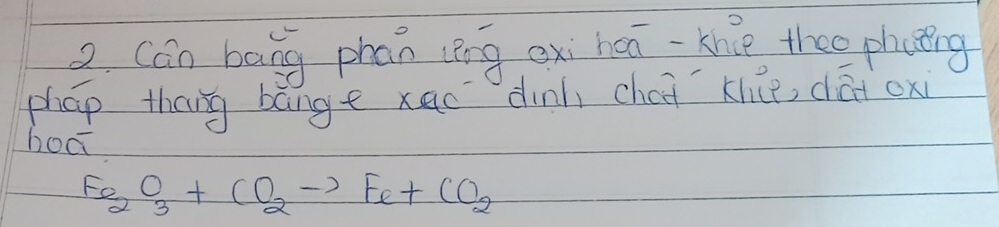 2. Cân bằng phản ứng oxi hoá - khử theo phương
pháp thăng bằng e xác định chất khử, chất oxi
hoá
Fe₂O₃ + CO₂ -> Fe + CO₂